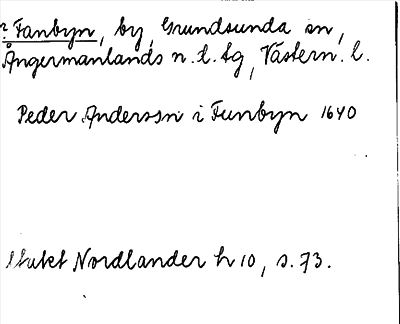 ? Fanbyn, by, Grundsunda sn,
Ångermanlands n. t. lg, Västern. l.
Peder Andersson i Funbyn 1640
Nordlander h 10, s. 73.